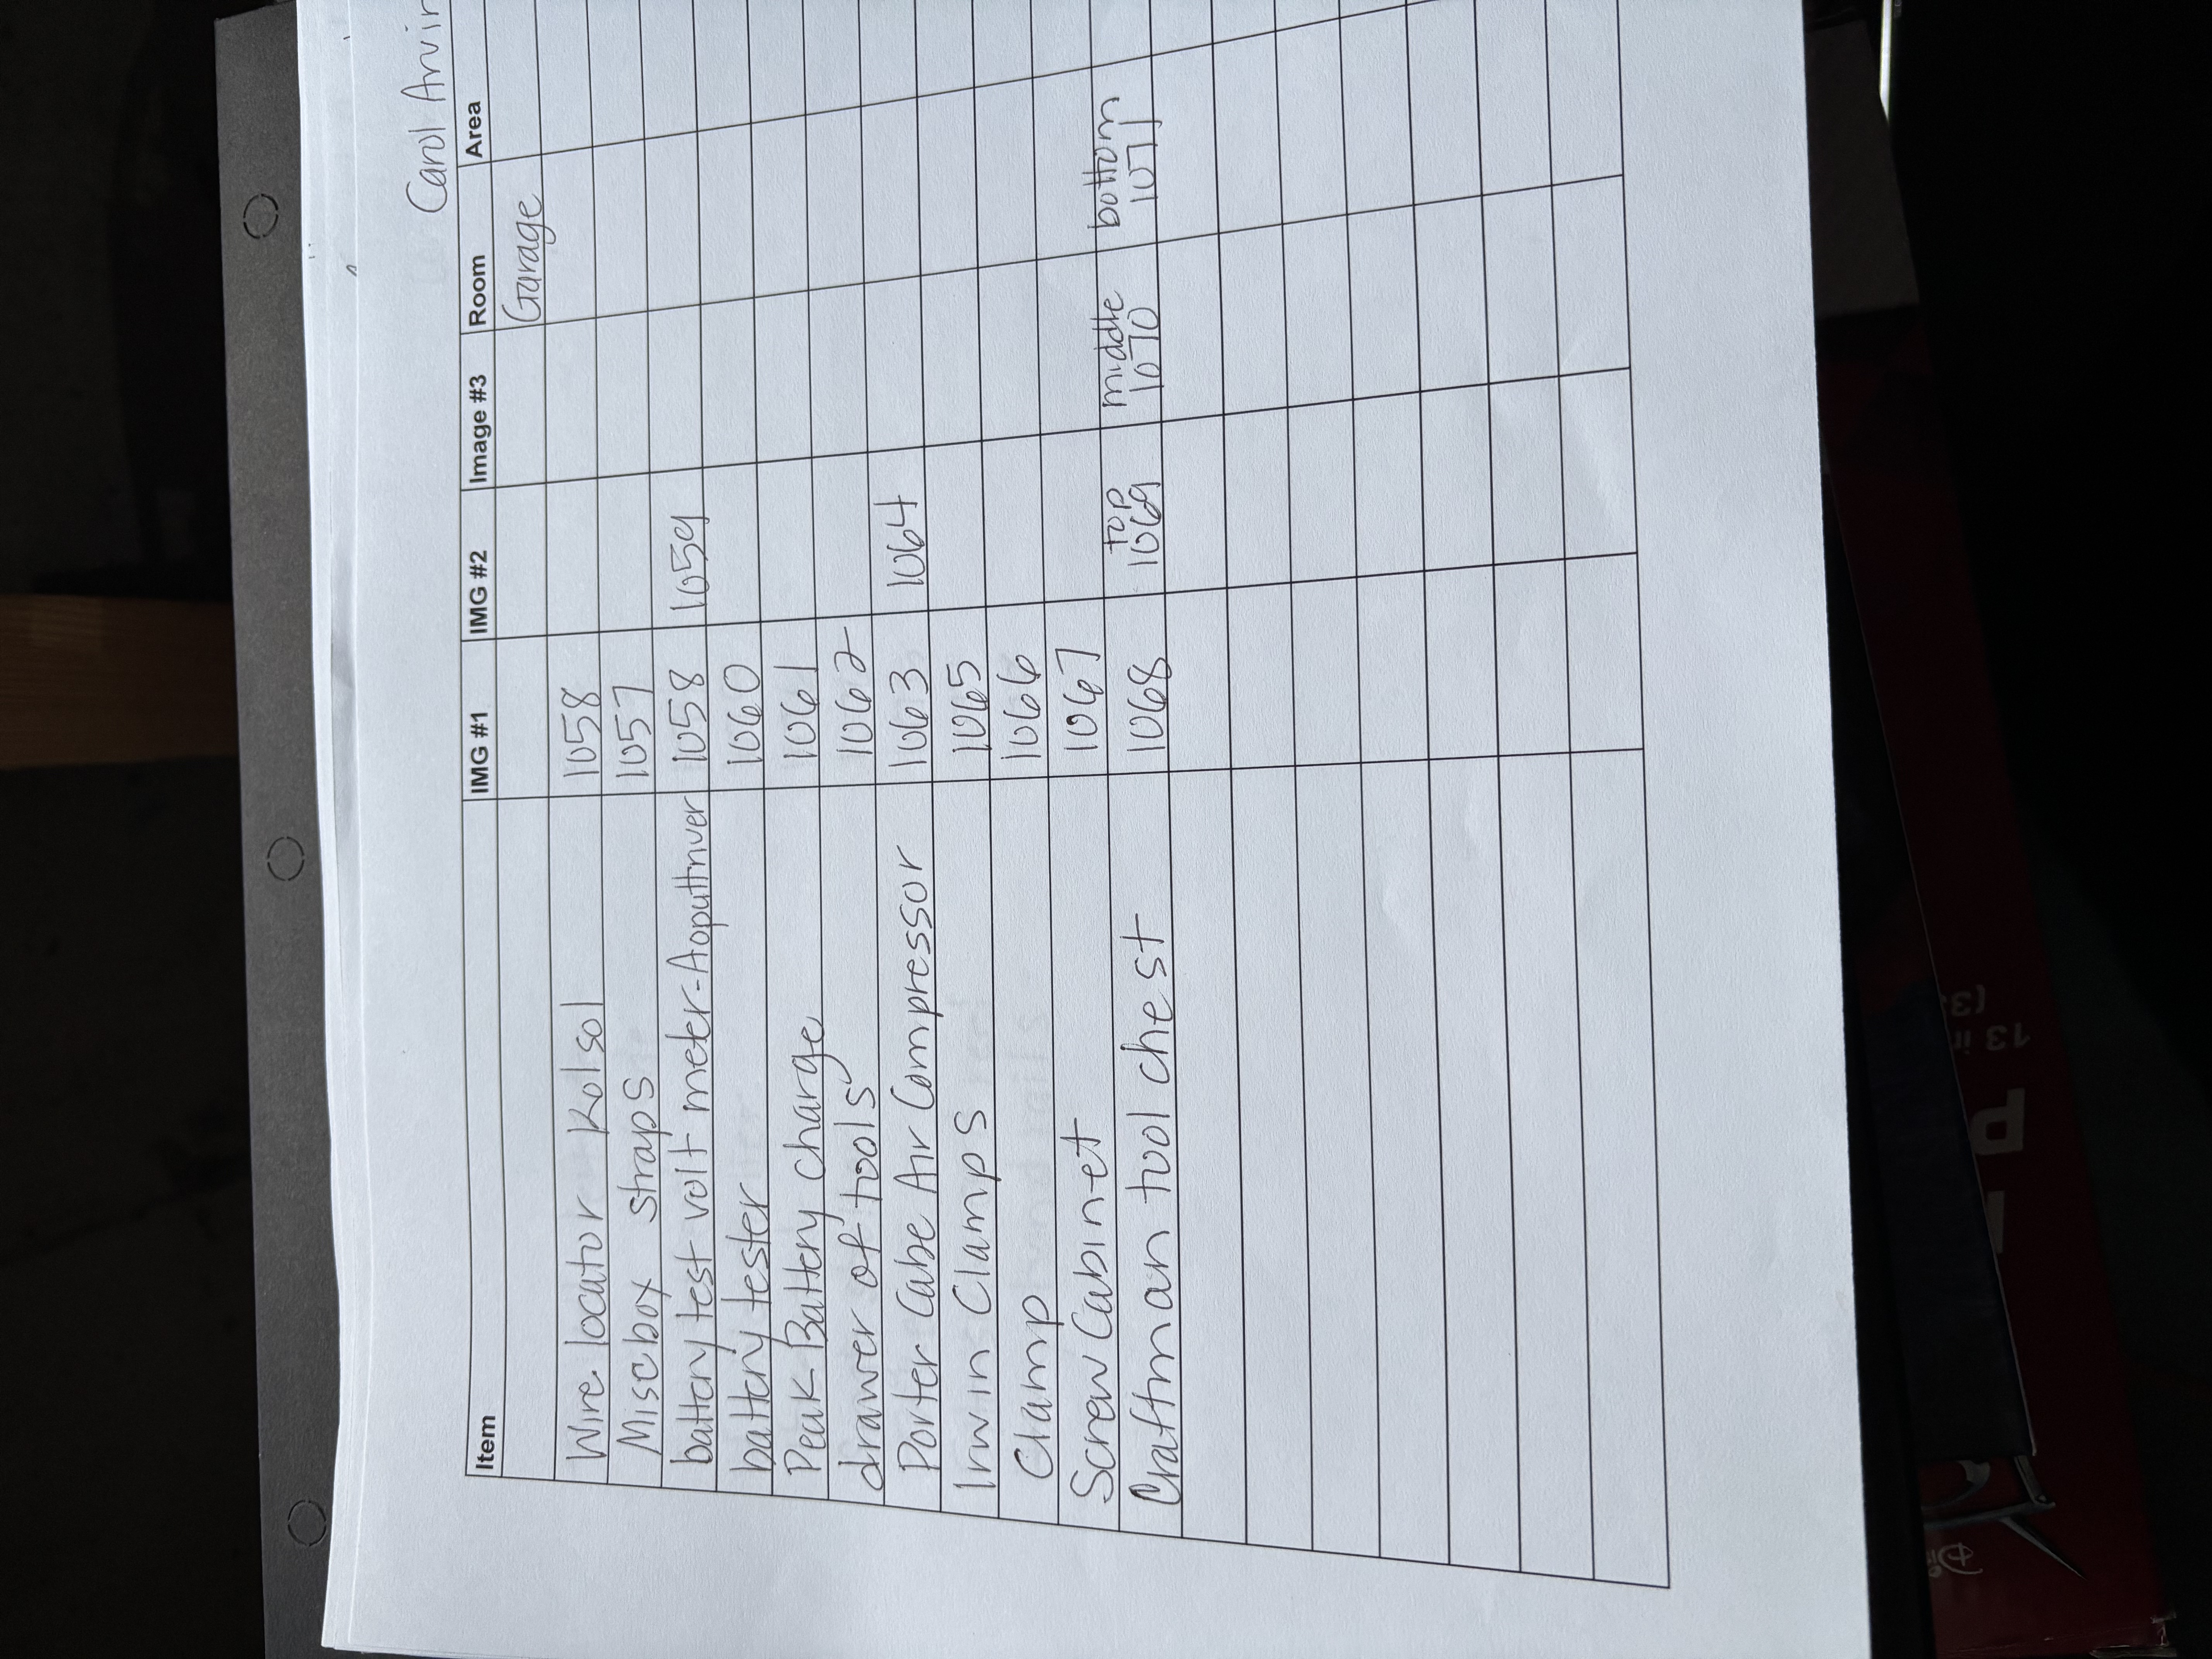 Carol Arvin
Item IMG #1 IMG #2 Image #3 Room Area
Garage
Wire locator Kolsol 1058
Misc box straps 1057
battery test volt meter-Aoputtriver 1058 1059
battery tester 1060
Peak Battery charge 1061
drawer of tools 1062
Porter Cabe Air Compressor 1063 1064
Irwin Clamps 1065
Clamp 1066
Screw Cabinet 1067
Craftman tool chest 1068 top 1069 middle 1070 bottom 1071
13 in